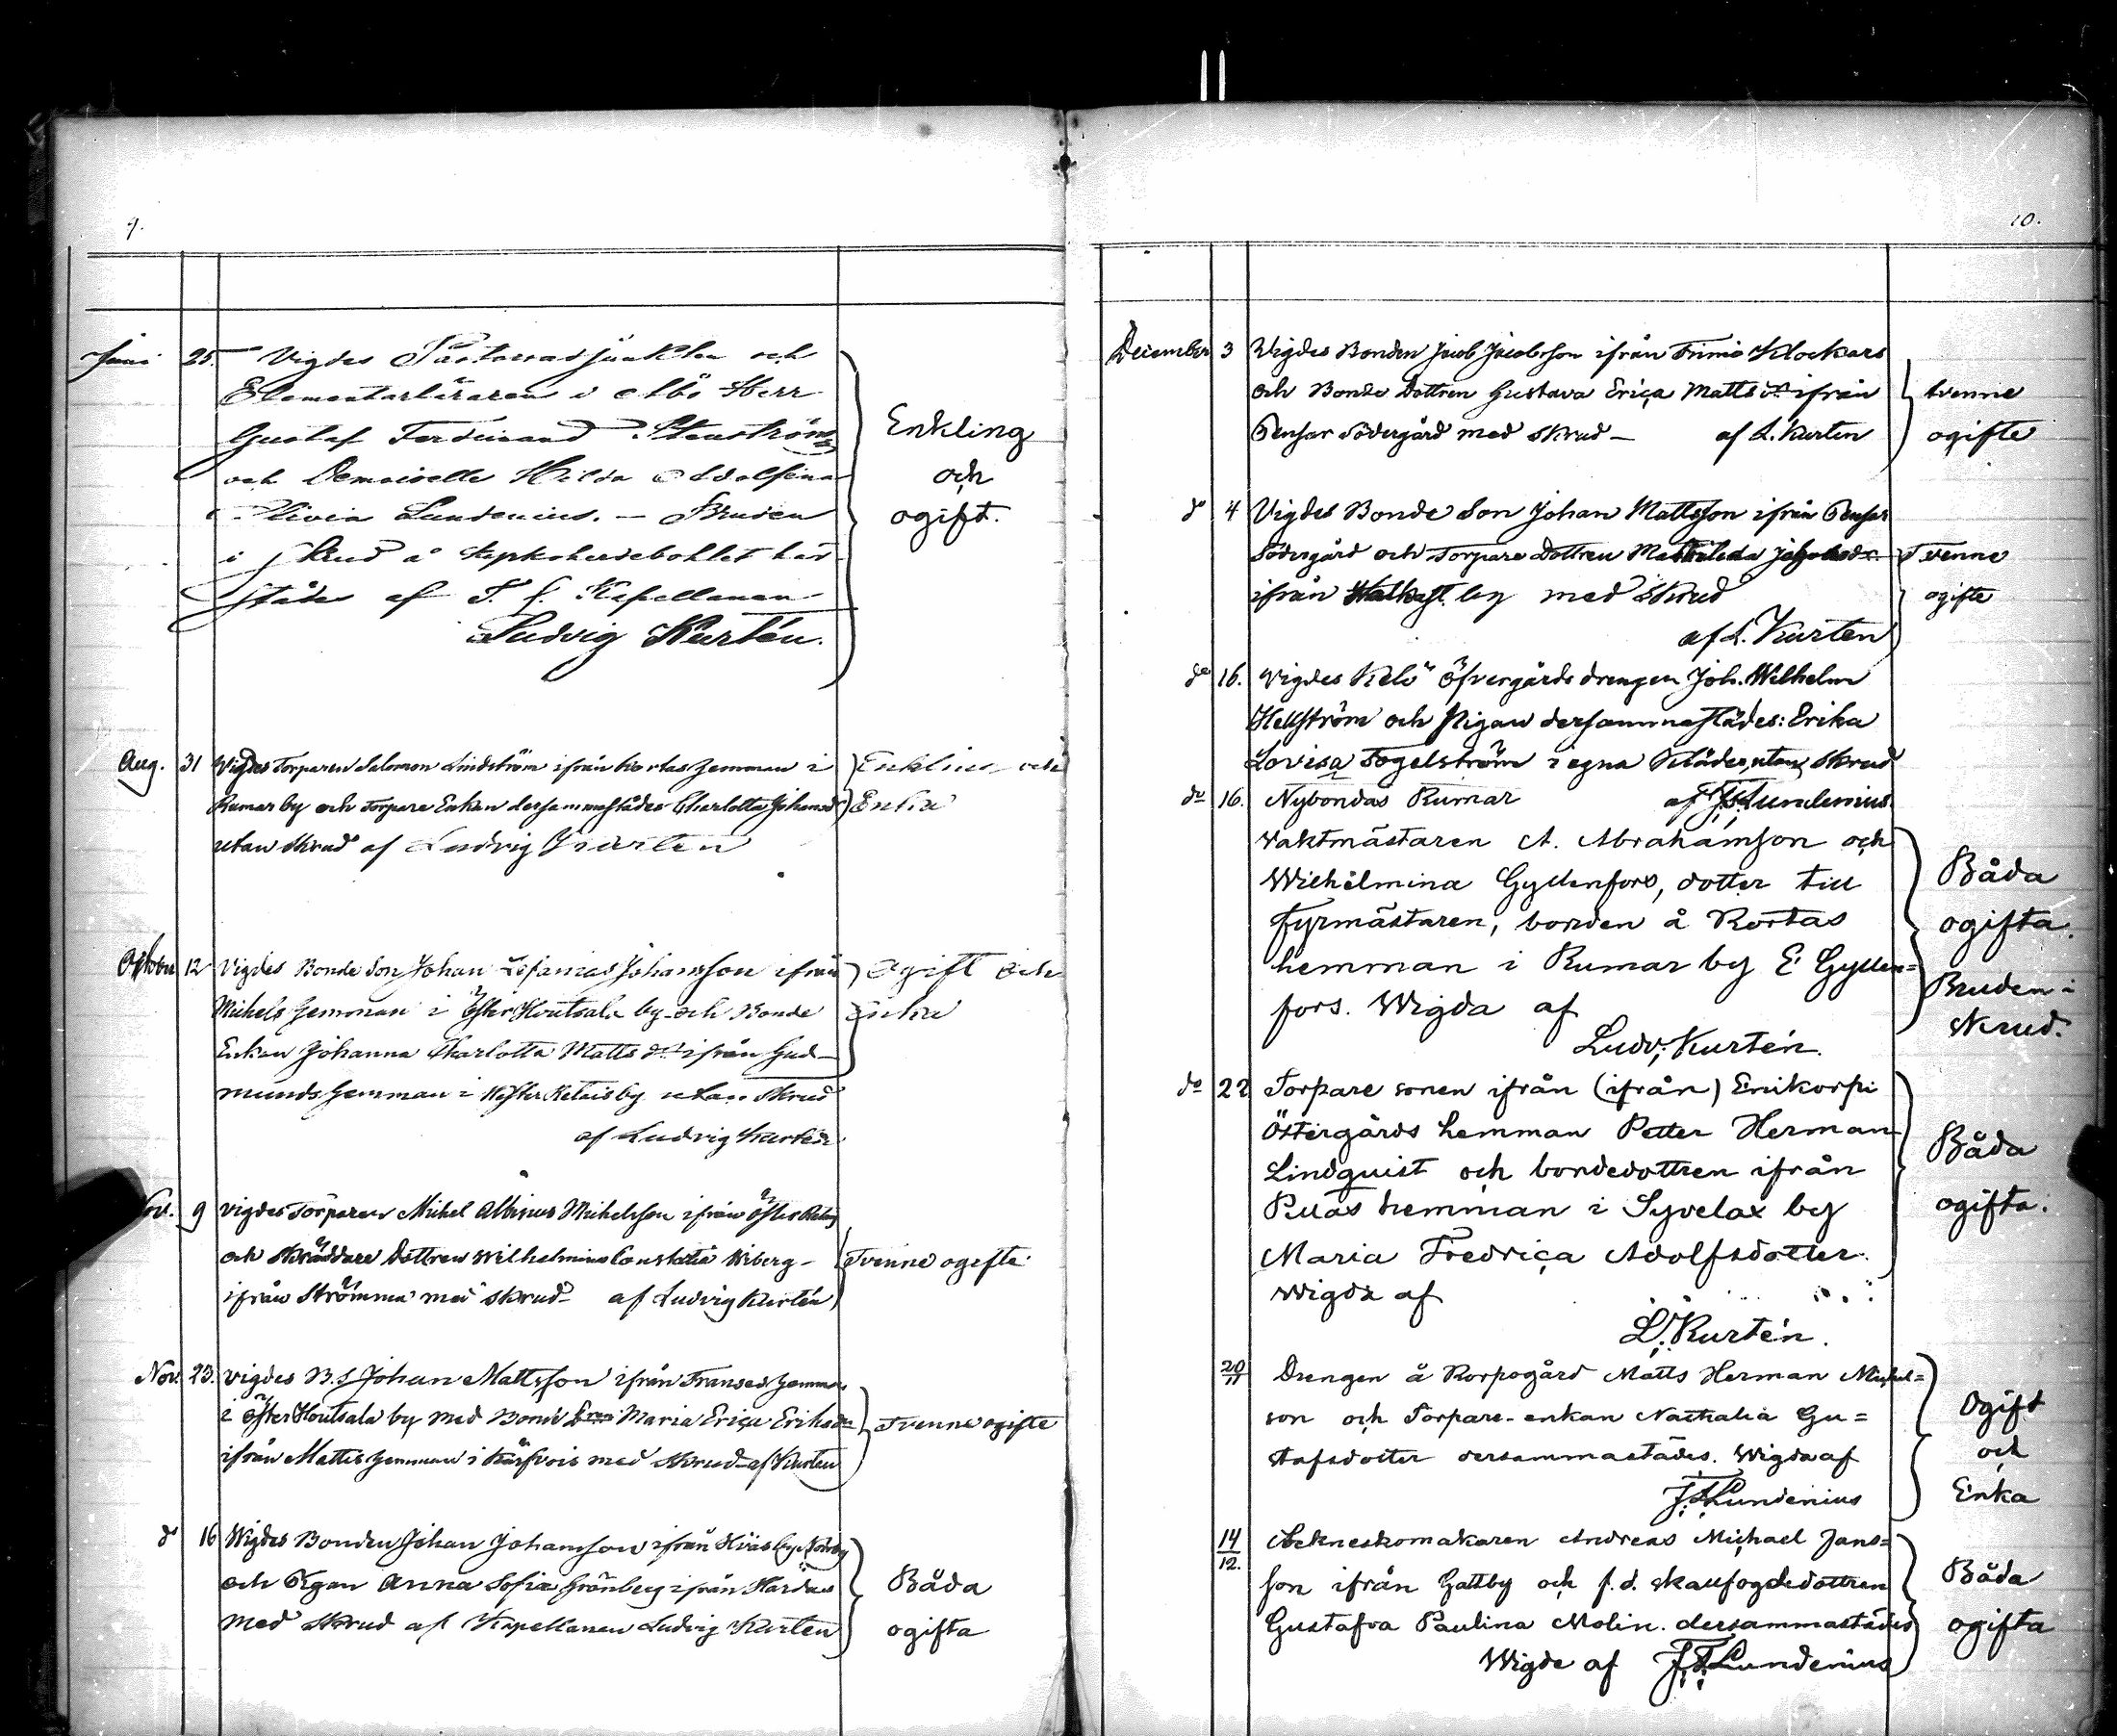 9.
Juni 25. Vigdes Pastorsadjunkten och
Elementarläraren i Åbo Herr
Gustaf Ferdinand Stenström
och Demoiselle Hilda Adolfina
Olivia Lundenius. — Bruden
i skrud å Kyrkoherdebohlet här-
städes af T. f. Kapellanen
Ludvig Kurtén.
Enkling
och
ogift.
Aug. 31 Vigdes Torparen Salomon Lindström ifrån Kortas hemman i
Rumar by och Torpare Enkan dersammastädes Charlotta Johansdr
utan skrud af Ludvig Kurten
Enkling och
Enka
October 12 Vigdes Bonde Son Johan Johansson ifrån
Michels hemman i Öster Houtsala by och Bonde
Enkan Johanna Charlotta Matts dr ifrån Gud-
munds hemman i Wester Retais by utan Skrud
af Ludvig Kurtén
Ogift och
Enka
Nov. 9 Vigdes Torparen Michel Albinus Michelsson ifrån Öster Retais
och Skräddare Dottren Wilhelmina Constatia Wiberg —
ifrån Strömma med skrud — af Ludvig Kurtén
Tvenne ogifte
Nov. 23. Vigdes B. S. Johan Mattsson ifrån Franses hemman
i Öster Houtsala by med Bond Maria Erica Eriksdr
ifrån Mattis hemman i Kärfvois med skrud — af Kurten
Tvenne ogifte
do 16 Wigdes Bonden Johan Johansson ifrån by
och Pigan Anna Sofia Grönberg ifrån Hardas
med Skrud af Kapellanen Ludvig Kurten
Båda
ogifta
10.
December 3 Vigdes Bonden Jacob Jacobsson ifrån Finnö Klockars
och Bonde Dottren Gustava Erica Matts dr ifrån
Pensar Södergård med skrud — af L. Kurten
tvenne
ogifte
do 4 Vigdes Bonde Son Johan Mattsson ifrån Pensar
Södergård och Torpare Dottren Mathilda Jakobsdr
ifrån by med Skrud
af L. Kurten
Tvenne
ogifte
do 16. Vigdes Kelö Öfvergårds drengen Joh. Wilhelm
Hellström och Pigan dersammastädes: Erika
Lovisa Fogelström i egna kläder, utan skrud
do 16. Nybondas Rumar af J. F. Lundenius
vaktmästaren A. Abrahamsson och
Wilhelmina Gyllenfors, dotter till
Fyrmästaren, bonden å Kortas
hemman i Rumar by E. Gyllen=
fors. Wigda af
Ludv. Kurtén.
Båda
ogifta.
Bruden i
skrud.
do 22 Torpare sonen ifrån (ifrån) Enikorpi
Östergårds hemman Petter Herman
Lindquist och bondedottren ifrån
Puas hemman i Syvelax by
Maria Fredrica Adolfsdotter.
Wigda af
L. Kurtén.
Båda
ogifta.
20/11 Drengen å Korpogård Matts Herman Michel=
son och Torpare-enkan Nathalia Gu=
stafsdotter dersammastädes. Wigda af
J. F. Lundenius
Ogift
och
Enka
14/12. Lekneskomakaren Andreas Michael Jans=
son ifrån Gattby och f.d. skallfogdedottren
Gustafva Paulina Molin. dersammastädes
Wigde af J. F. Lundenius
Båda
ogifta